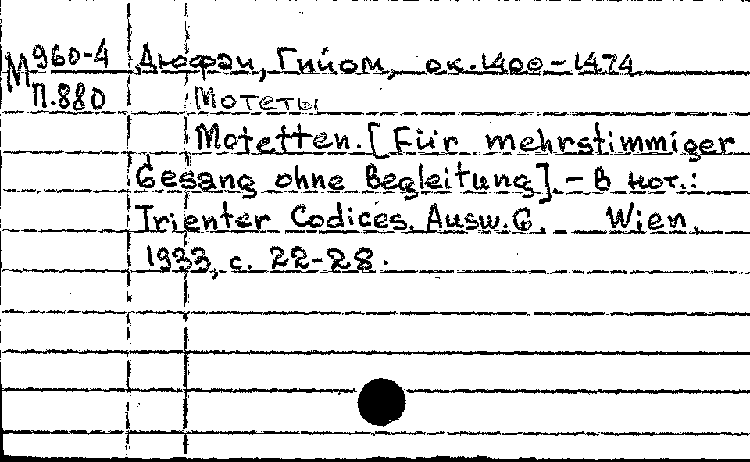 М 960-4 Дюфэи, Гийом, ок. 1400-1474
П.880 Мотеты
Motetten. [Für mehrstimmiger
Gesang ohne Begleitung]. - В нот.:
Trienter Codices. Ausw. 6. Wien,
1933, с. 22-28.